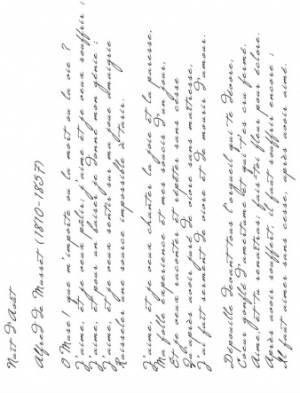 Nuit d'Aout
Alfred de Musset (1810-1857)
O Muse! que m'importe ou la mort ou la vie ?
J'aime, et je veux pâlir; j'aime et je veux souffrir ;
J'aime, et pour un baiser je donne mon génie ;
J'aime, et je veux sentir sur ma joue amaigrie
Ruisseler une source impossible à tarir.
J'aime, et je veux chanter la joie et la paresse,
Ma folle expérience et mes soucis d'un jour,
Et je veux raconter et répéter sans cesse
Qu'après avoir juré de vivre sans maîtresse,
J'ai fait serment de vivre et de mourir d'amour.
Dépouille devant tous l'orgueil qui te dévore,
Coeur gonflé d'amertume et qui t'es cru fermé.
Aime, et tu renaîtras; fais-toi fleur pour éclore.
Après avoir souffert, il faut souffrir encore ;
Il faut aimer sans cesse, après avoir aimé.